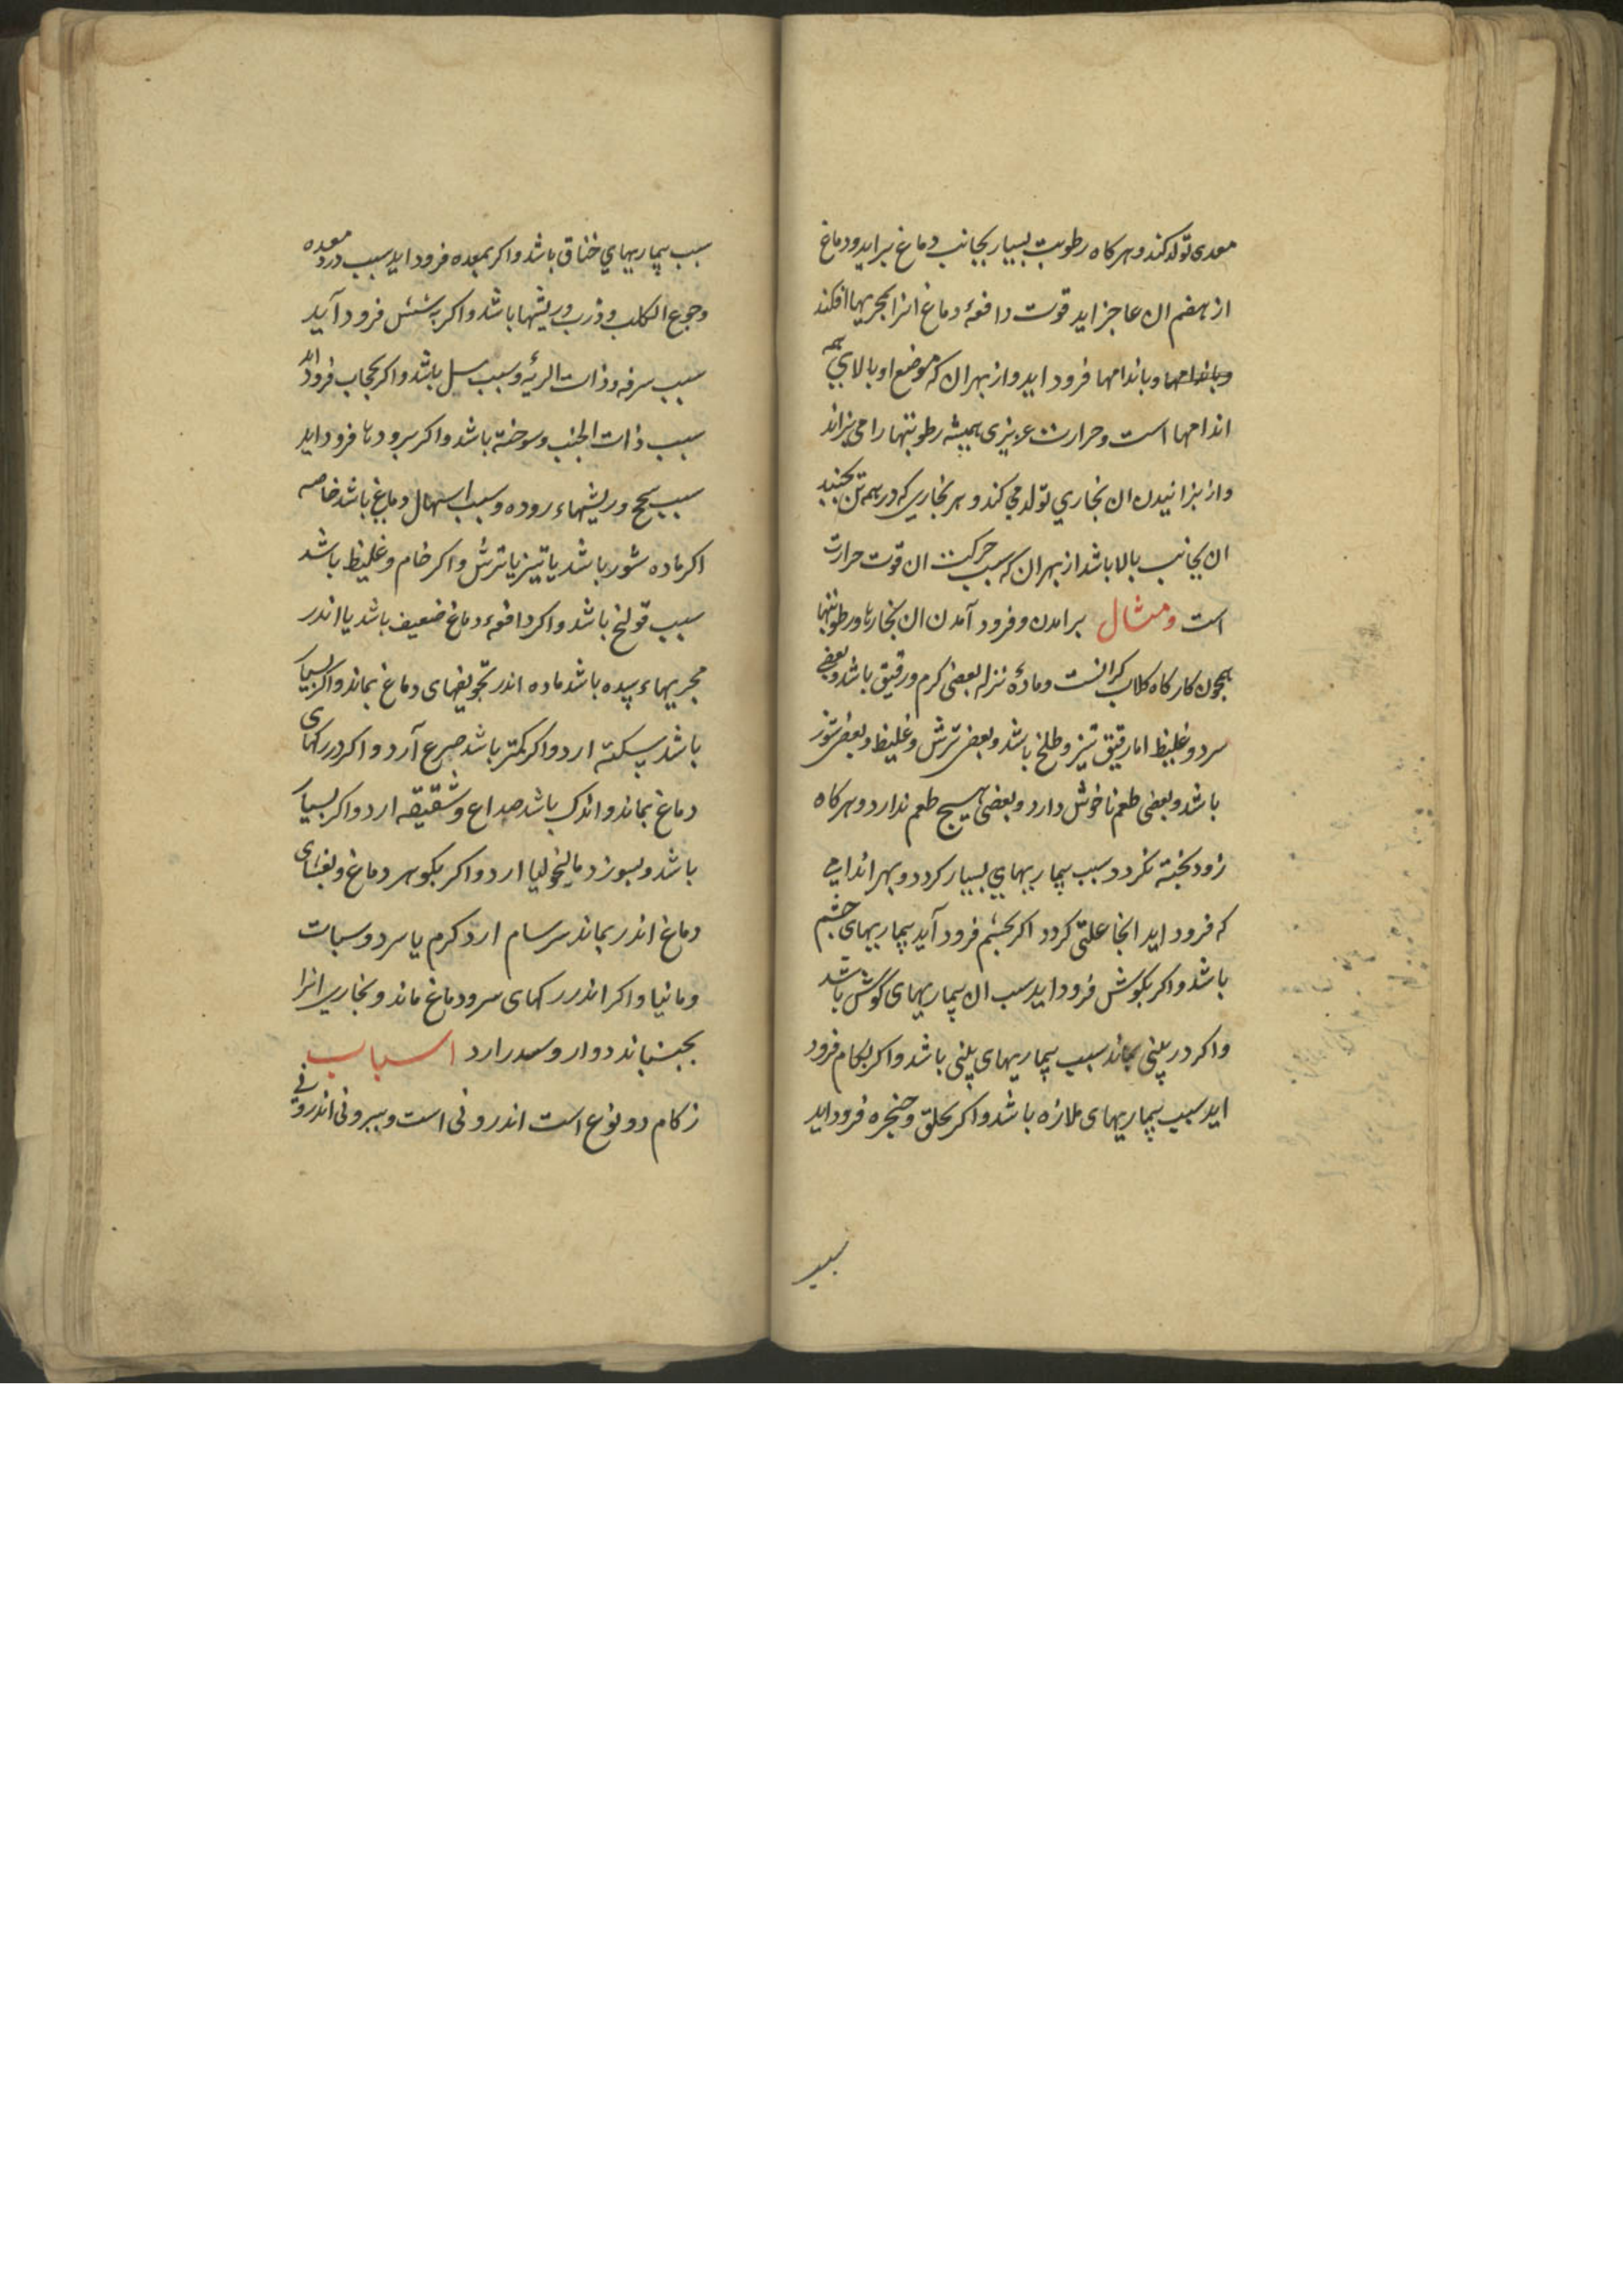 معدی تولد کند و هر کاه رطوبت بسیار بجانب دماغ براید و دماغ
از هضم ان عاجز اید قوت دافعهٔ دماغ انرا بمجریها افکند
وباندامها وباندامها فرود اید و از بهر ان که موضع او بالای همه
اندامها است و حرارت عزیزی همیشه رطوبتها را می بزاند
واز بزانیدن ان بخاری تولد می کند و هر بخاری که در همه تن بجنبد
ان بجانب بالا باشد از بهر ان که سبب حرکت ان قوت حرارت
است ومثال برامدن و فرود آمدن ان بخارها ورطوبتها
همچون کارکاه کلاب کرانست و مادهٔ نزله بعضی کرم ورقیق باشد وبعضی
سرد وغلیظ اما رقیق تیز و طلخ باشد وبعضی ترش وغلیظ وبعضی شور
باشد وبعضی طعم ناخوش دارد وبعضی هیچ طعم ندارد وهرکاه
زود بخته نکردد سبب بیماریهای بسیار کردد و بهر اندامی
که فرود اید انجا علتی کردد اکر بجشم فرود آید بیماریهای جشم
باشد واکر بکوش فرود اید سبب ان بیماریهای کوش باشد
واکر در بینی بماند سبب بیماریهای بینی باشد واکر بکام فرود
اید سبب بیماریهای ملازه باشد واکر بحلق وحنجره فرود اید
سبب
سبب بیماریهای خناق باشد واکر بمعده فرود اید سبب درد معده
وجوع الکلب وذرب وریشها باشد واکر بشش فرود آید
سبب سرفه وذات الریه وسبب سل باشد واکر بحجاب فرود اید
سبب ذات الجنب وسوخته باشد واکر برودها فرود اید
سبب سحج وریشهاء روده وسبب اسهال دماغی باشد خاصه
اکر ماده شور باشد یا تیز یا ترش واکر خام وغلیظ باشد
سبب قولنج باشد واکر دافعهٔ دماغ ضعیف باشد یا اندر
مجریهاء سده باشد ماده اندر تجویفهای دماغ بماند واکر بسیار
باشد سکته ارد واکر کمتر باشد صرع آرد واکر در رکهای
دماغ بماند واندک باشد صداع وشقیقه ارد واکر بسیار
باشد وبسوزد مالیخولیا ارد واکر بکوهر دماغ وبغشای
دماغ اندر بماند سرسام ارد کرم یا سرد وسبات
ومانیا واکر اندر رکهای سر ودماغ ماند وبخاری انرا
بجنباند دوار وسدر ارد اسباب
زکام دو نوع است اندرونی است وبیرونی اندرونی